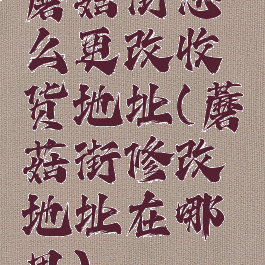 蘑菇街怎
么更改收
货地址(蘑
菇街修改
地址在哪
里)